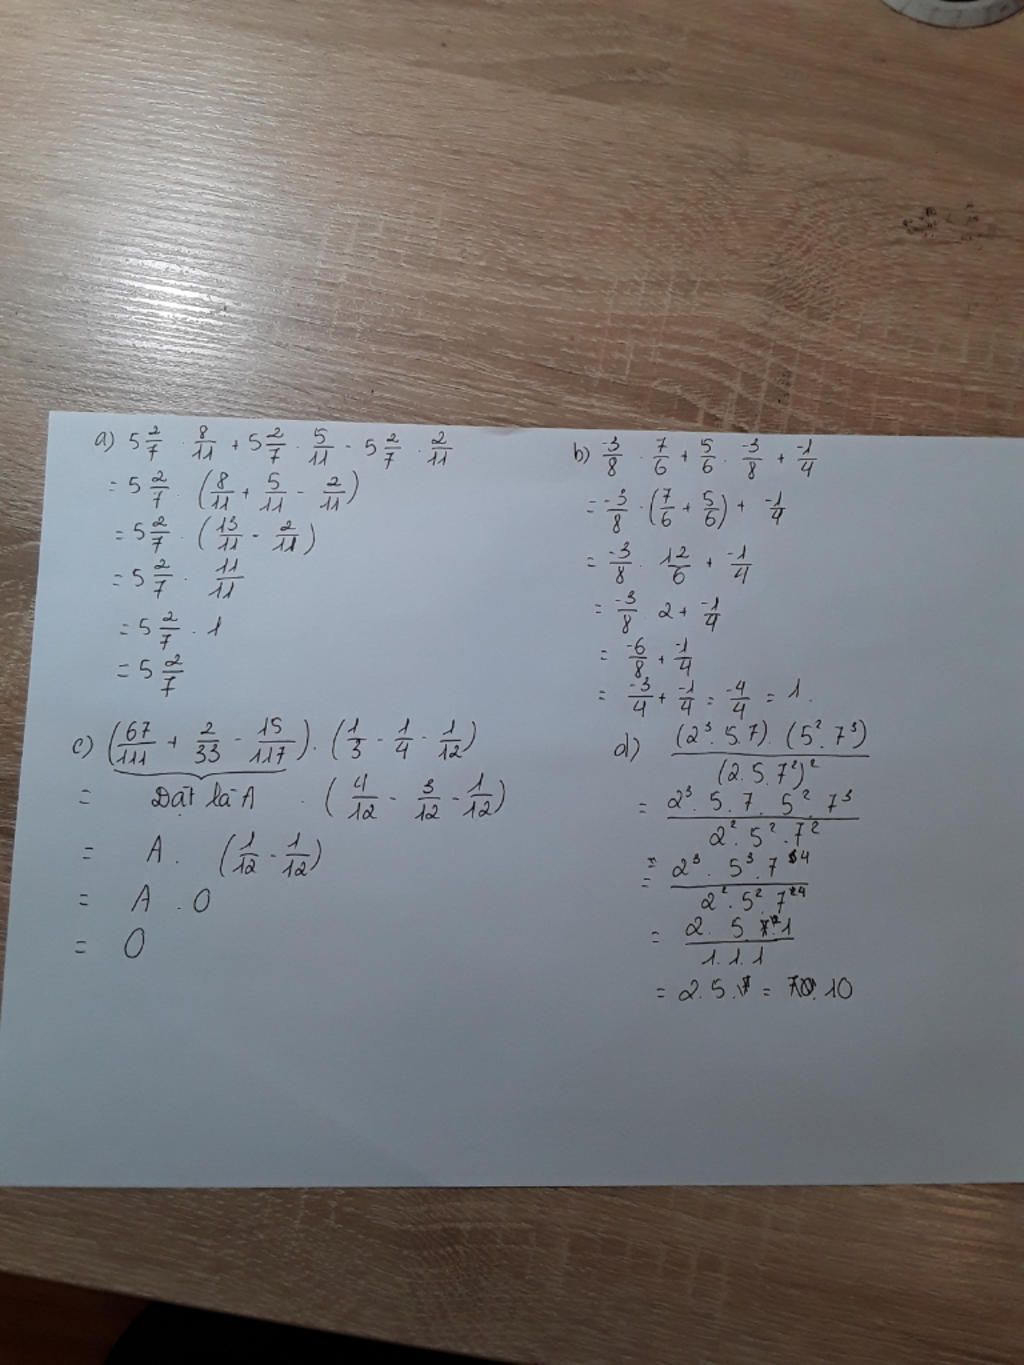 a) 5 2/7 . 8/11 + 5 2/7 . 5/11 - 5 2/7 . 2/11
= 5 2/7 . (8/11 + 5/11 - 2/11)
= 5 2/7 . (13/11 - 2/11)
= 5 2/7 . 11/11
= 5 2/7 . 1
= 5 2/7
b) -3/8 . 7/6 + 5/6 . -3/8 + -1/4
= -3/8 . (7/6 + 5/6) + -1/4
= -3/8 . 12/6 + -1/4
= -3/8 . 2 + -1/4
= -6/8 + -1/4
= -3/4 + -1/4 = -4/4 = 1.
c) (67/111 + 2/33 - 15/117) . (1/3 - 1/4 - 1/12)
= Đặt là A . (4/12 - 3/12 - 1/12)
= A . (1/12 - 1/12)
= A . 0
= 0
d) (2³. 5. 7) . (5² . 7³) / (2. 5. 7²)²
= 2³. 5. 7. 5² . 7³ / 2² . 5² . 7²
= 2³ . 5³ . 7⁴ / 2² . 5² . 7⁴
= 2. 5 . 1 / 1. 1. 1
= 2. 5. = 10